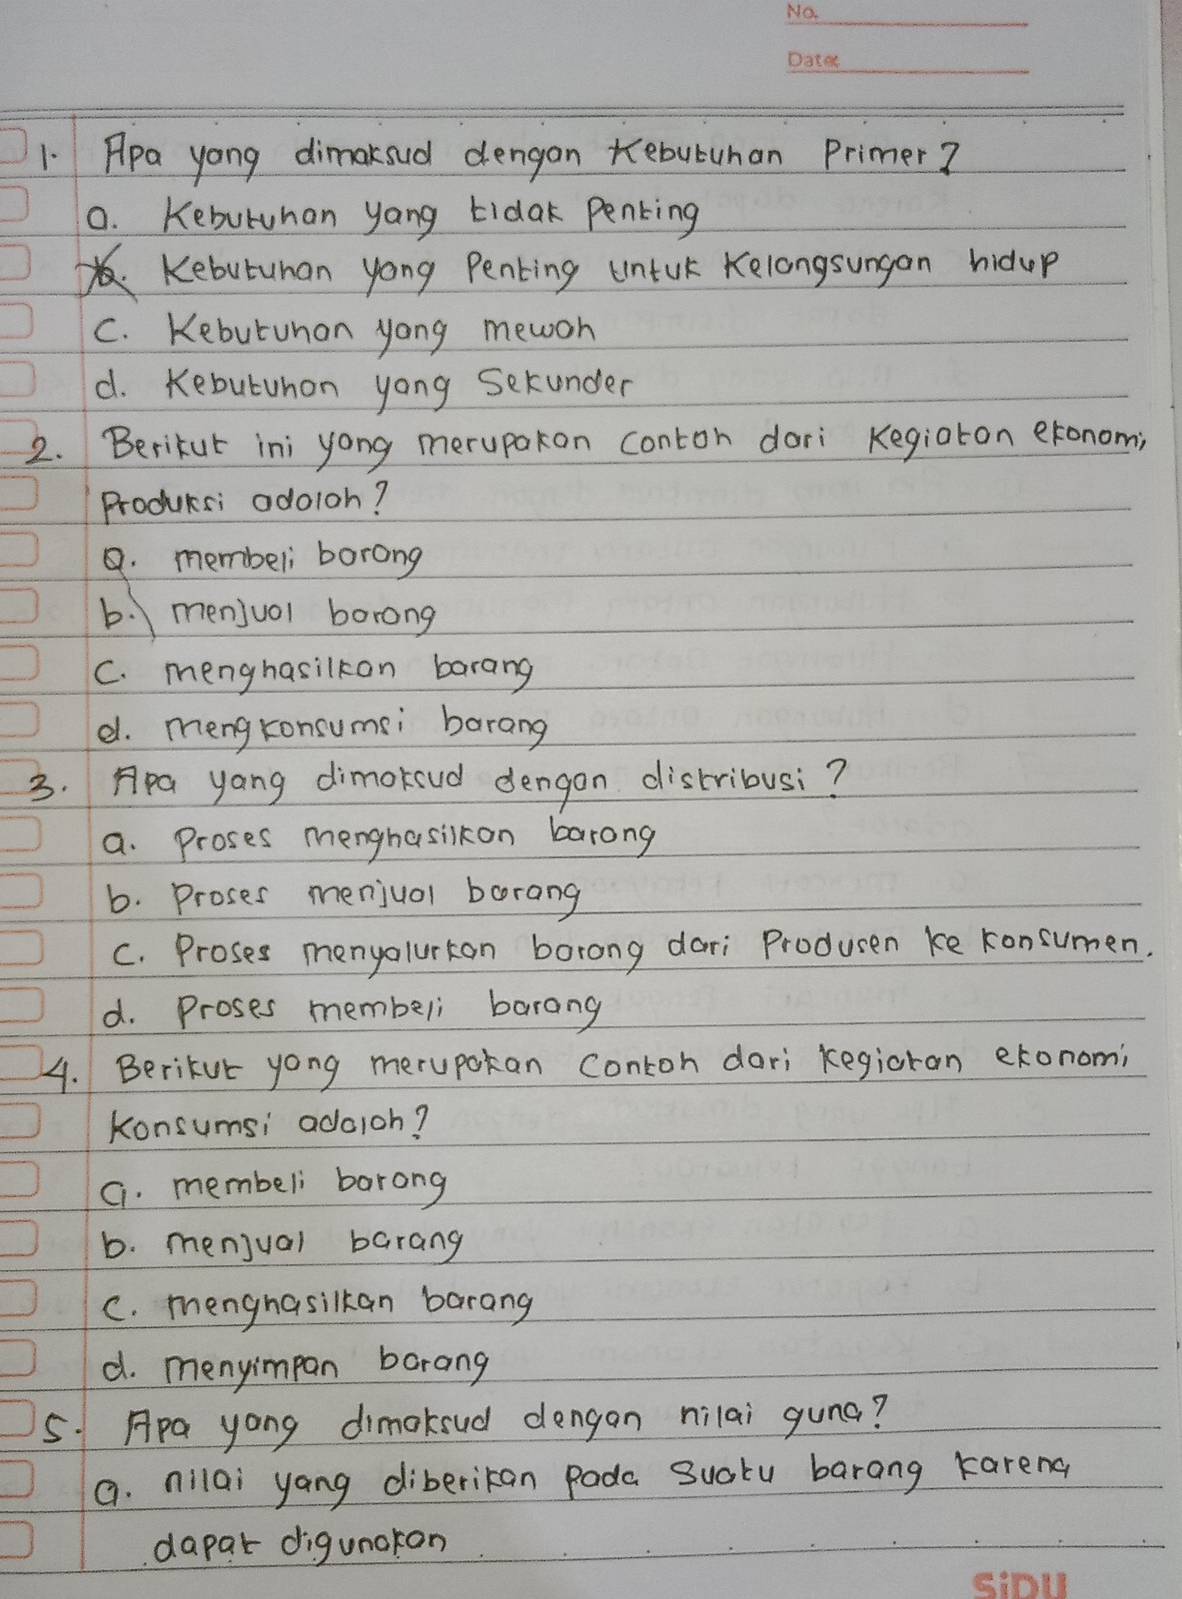 No.
Date:
1. Apa yang dimaksud dengan Kebutuhan Primer?
a. Kebutuhan yang tidak Penting
b. Kebutuhan yang Penting Untuk Kelangsungan hidup
C. Kebutuhan yang mewah
d. Kebutuhan yang Sekunder
2. Berikut ini yang merupakan contoh dari Kegiatan ekonomi
Produksi adalah?
a. membeli barang
b. menjual barang
C. menghasilkan barang
d. mengkonsumsi barang
3. Apa yang dimaksud dengan distribusi?
a. Proses menghasilkan barang
b. Proses menjual barang
C. Proses menyalurkan barang dari Produsen ke konsumen.
d. Proses membeli barang
4. Berikut yang merupakan Contoh dari kegiatan ekonomi
Konsumsi adalah?
a. membeli barang
b. menjual barang
C. menghasilkan barang
d. menyimpan barang
5. Apa yang dimaksud dengan nilai guna?
a. nilai yang diberikan Pada Suatu barang karena
dapat digunakan
SiDU